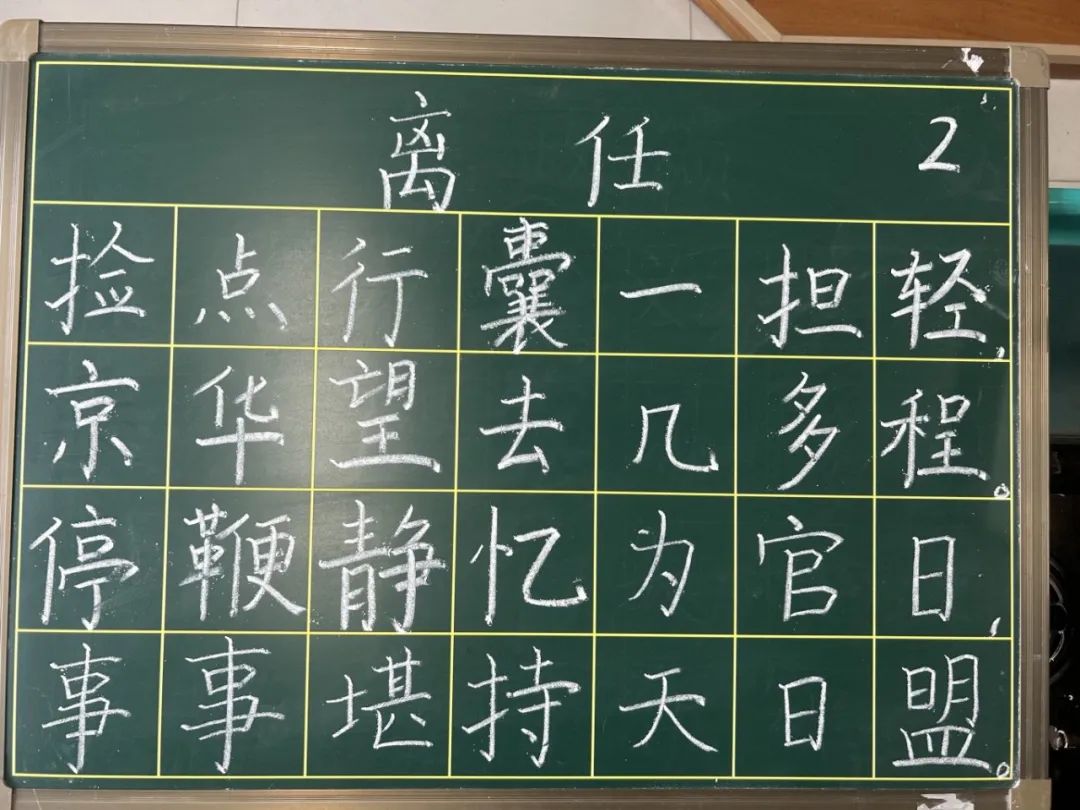 离任 2
捡点行囊一担轻，
京华望去几多程。
停鞭静忆为官日，
事事堪持天日盟。